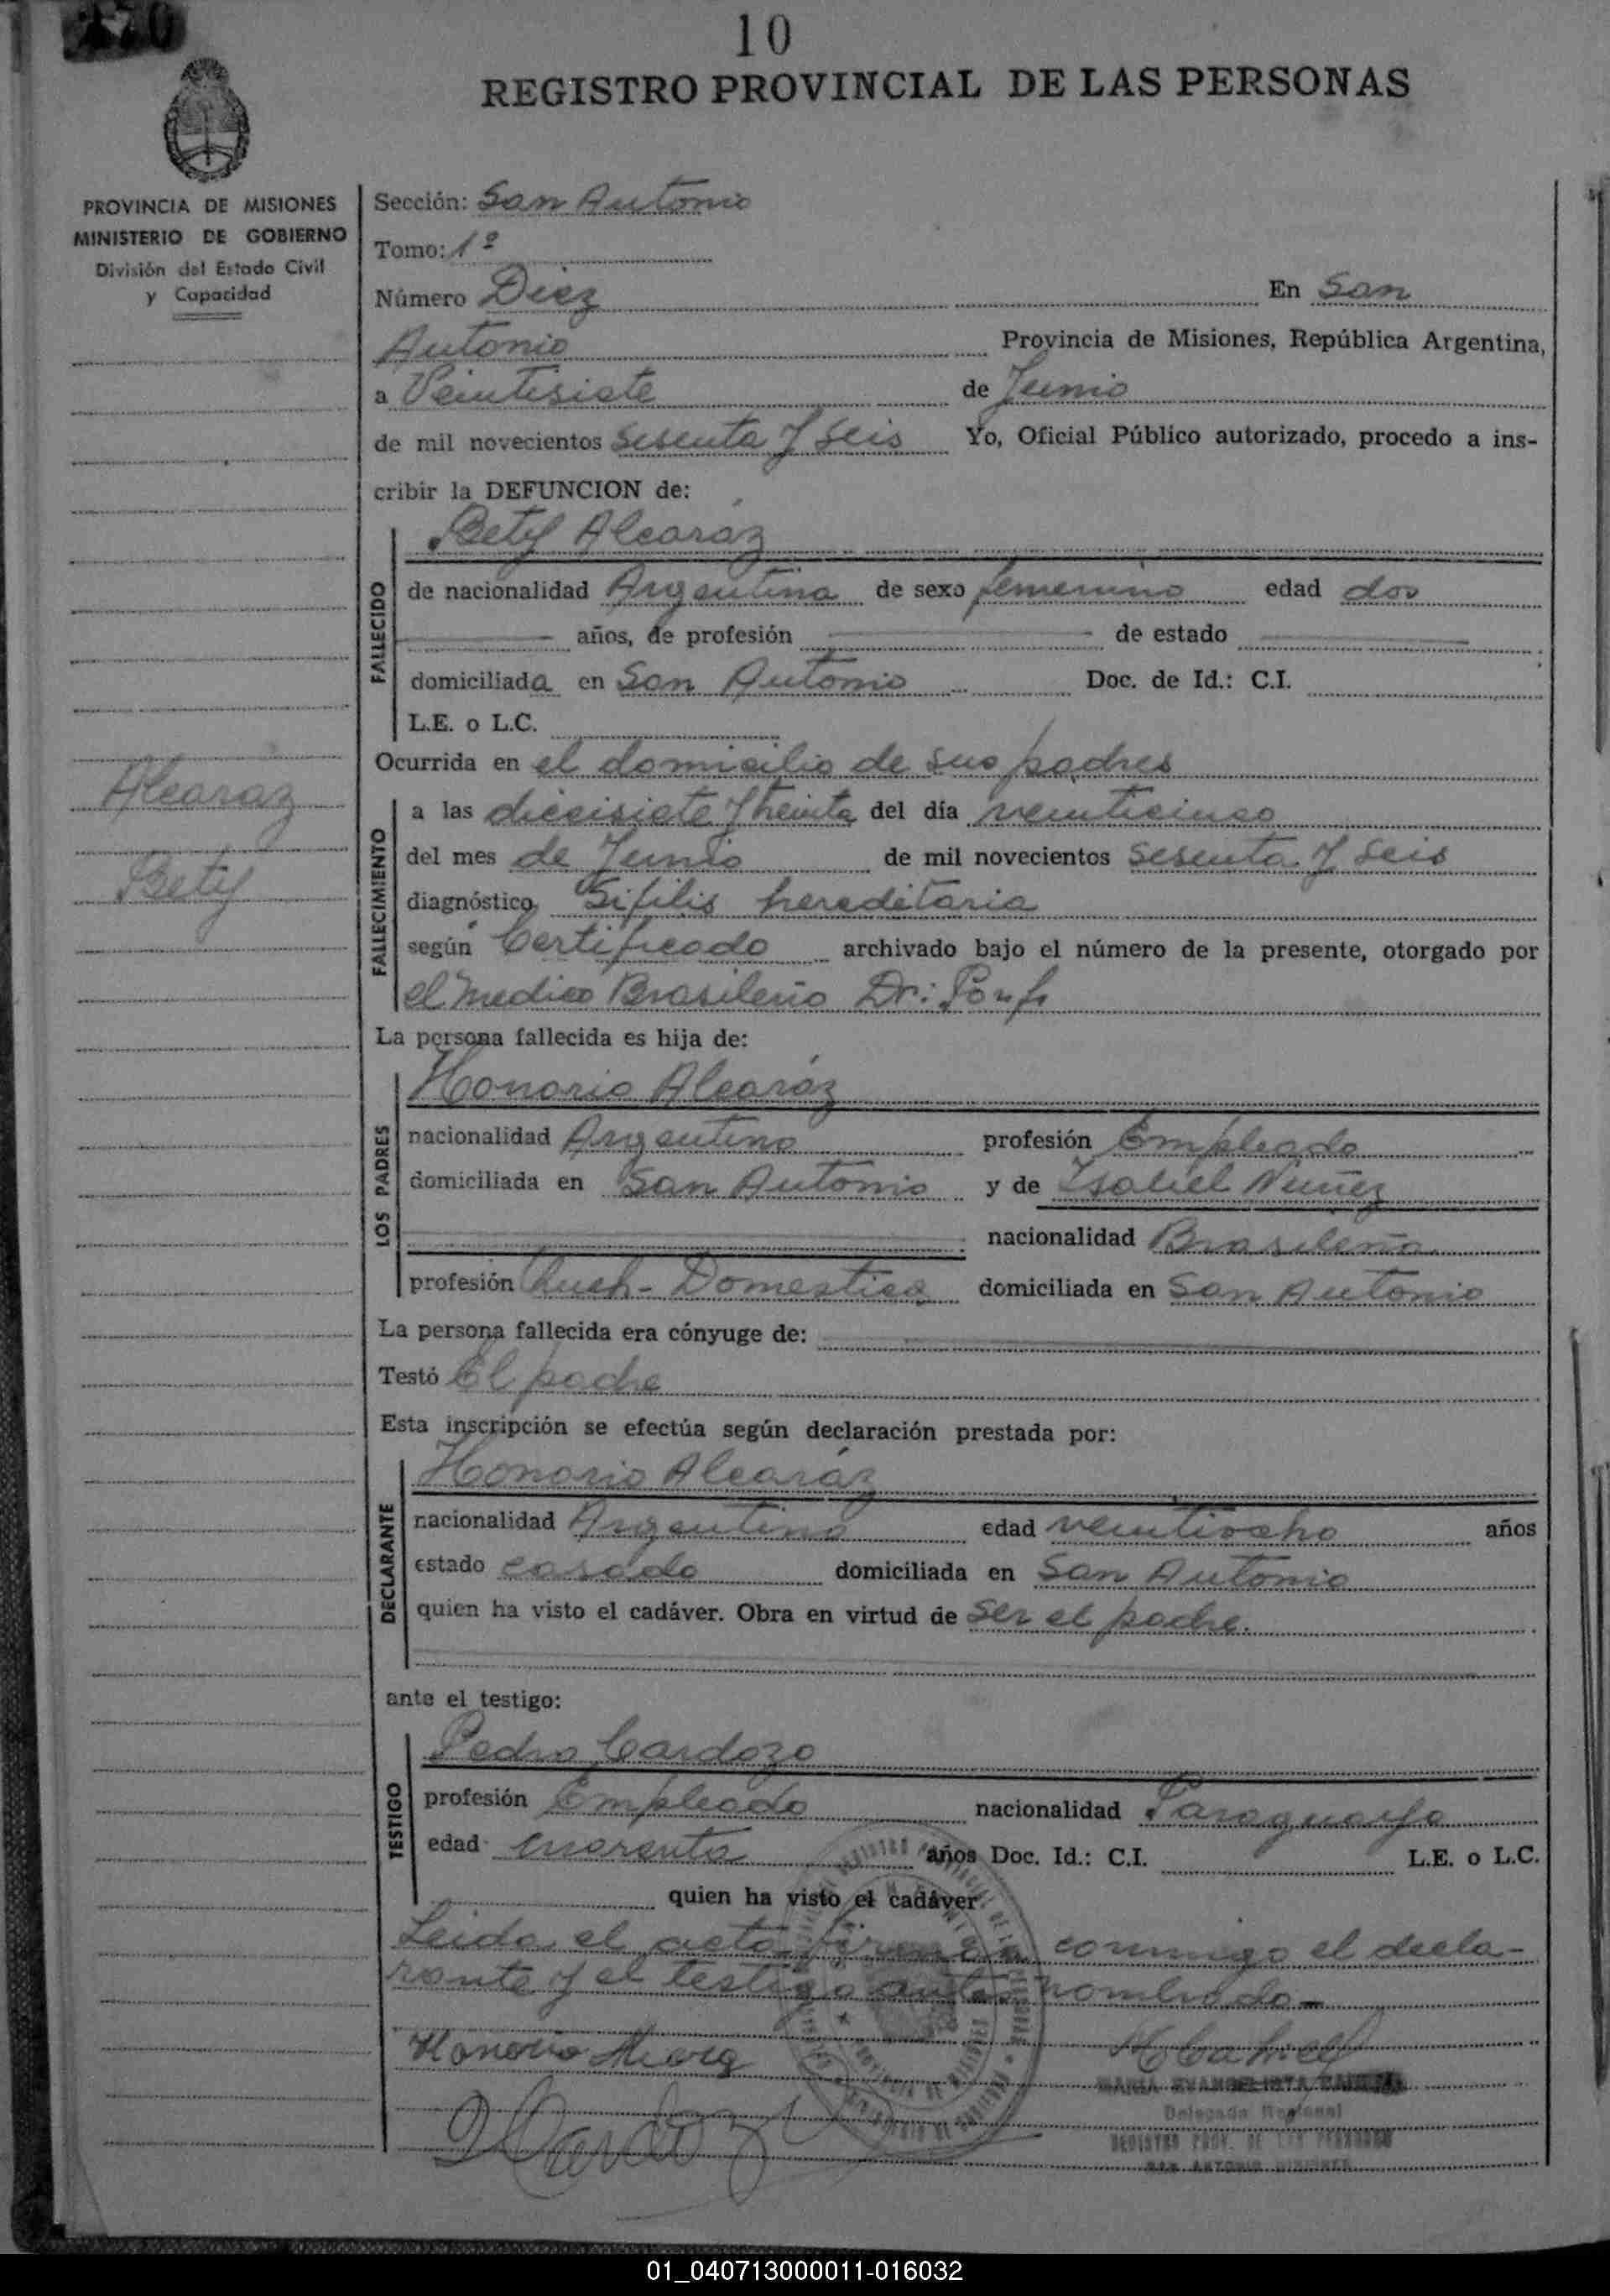 10
REGISTRO PROVINCIAL DE LAS PERSONAS
PROVINCIA DE MISIONES
MINISTERIO DE GOBIERNO
División del Estado Civil
y Capacidad
Sección: San Antonio
Tomo: 1º
Número Diez En San
Antonio Provincia de Misiones, República Argentina,
a Veintisiete de Junio
de mil novecientos sesenta y seis Yo, Oficial Público autorizado, procedo a ins-
cribir la DEFUNCION de:
Bety Alcaráz
FALLECIDO
de nacionalidad Argentina de sexo femenino edad dos
años, de profesión de estado
domiciliada en San Antonio Doc. de Id.: C.I.
L.E. o L.C.
Ocurrida en el domicilio de sus padres
Alcaraz
Bety
FALLECIMIENTO
a las diecisiete y treinta del día veinticinco
del mes de Junio de mil novecientos sesenta y seis
diagnóstico Sifilis hereditaria
según Certificado archivado bajo el número de la presente, otorgado por
el medico Brasileño Dr:
La persona fallecida es hija de:
Honorio Alcaráz
LOS PADRES
nacionalidad Argentino profesión Empleado
domiciliada en San Antonio y de Isabel Nuñez
nacionalidad Brasileña
profesión Domestica domiciliada en San Antonio
La persona fallecida era cónyuge de:
Testó El padre
Esta inscripción se efectúa según declaración prestada por:
Honorio Alcaráz
DECLARANTE
nacionalidad Argentino edad veintiocho años
estado casado domiciliada en San Antonio
quien ha visto el cadáver. Obra en virtud de ser el padre.
ante el testigo:
Pedro Cardozo
TESTIGO
profesión Empleado nacionalidad Paraguaya
edad cuarenta años Doc. Id.: C.I. L.E. o L.C.
quien ha visto el cadáver
Leida el acta firman conmigo el decla-
rante y el testigo antes nombrado-
Honorio
MARIA EVANGELISTA
Delegada Regional
REGISTRO PROV. DE LAS PERSONAS
SAN ANTONIO MISIONES
01_040713000011-016032